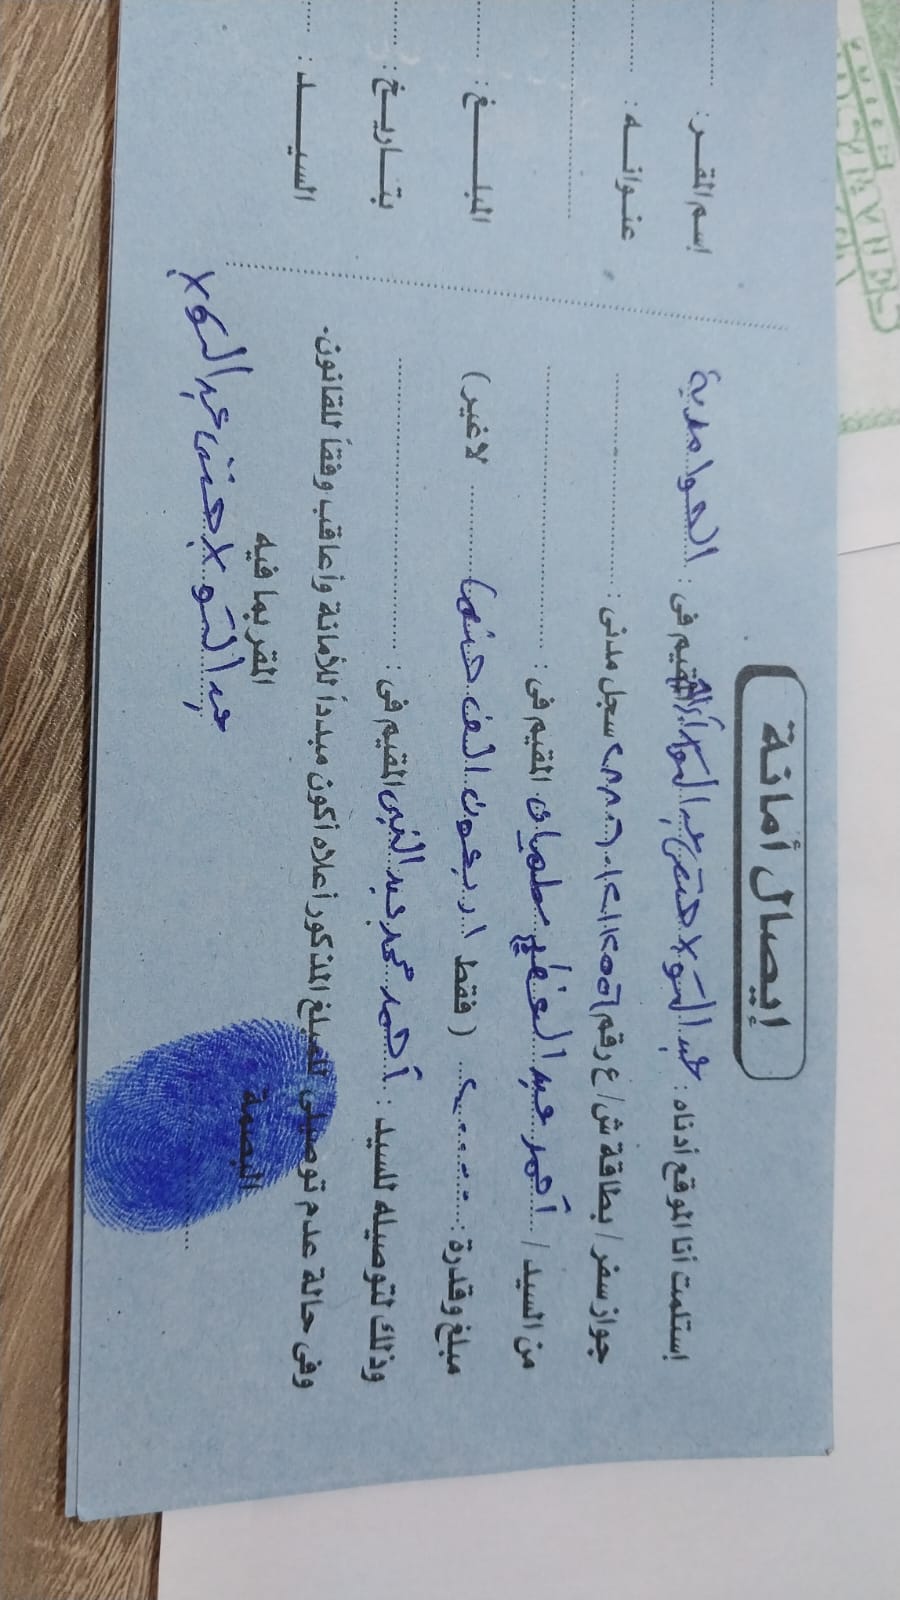 إيصال أمانة
إستلمت أنا الموقع أدناه : عبد المولا حنفى عبد المولا المقيم فى : الحوامدية
جواز سفر / بطاقة ش / ع رقم سجل مدنى :
من السيد / أحمد عبد العظيم المقيم فى :
مبلغ وقدرة : ٤٠٠٠٠ ( فقط اربعون الف جنيها لاغير )
وذلك لتوصيله للسيد : أحمد محمد عبد النبى المقيم فى :
وفى حالة عدم توصيلى للمبلغ المذكور أعلاه أكون مبدداً للأمانة وأعاقب وفقاً للقانون .
المقر بما فيه
البصمة
عبد المولا حنفى عبد المولا
إسم المقر :
عنوانه :
المبلغ :
بتاريخ :
السيد :